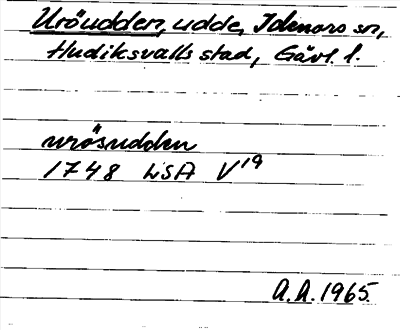 Uröudden, udde, Idenors sn,
Hudiksvalls stad, Gävl. l.
urösudden
1748 LSA V19
A.A. 1965.